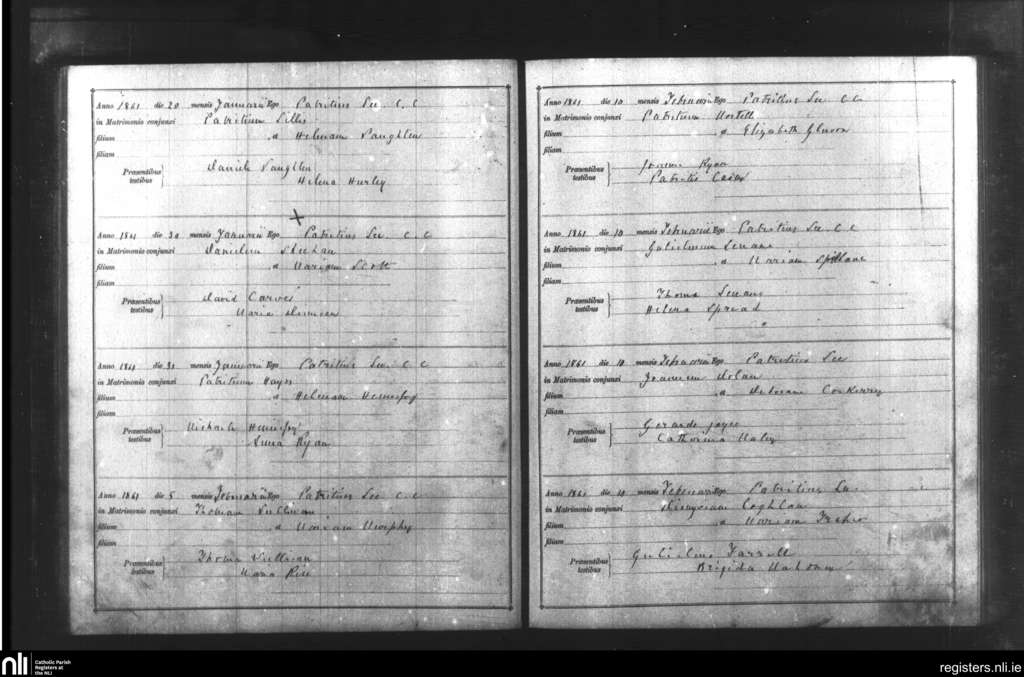 Anno 1861 die 20 mensis Januarii Ego Patritius Lee C. C
in Matrimonio conjunxi Patritium Lillis
filium et Helenam Naughten
filiam
Præsentibus testibus Daniele Naughten
Helena Hurley
X
Anno 1861 die 30 mensis Januarii Ego Patritius Lee C C
in Matrimonio conjunxi Danielem Sheehan
filium et Mariam Scott
filiam
Præsentibus testibus David
Maria
Anno 1861 die 31 mensis Januarii Ego Patritius Lee C C
in Matrimonio conjunxi Patritium Hayes
filium et Helenam
filiam
Præsentibus testibus Michaele
Anna Ryan
Anno 1861 die 5 mensis Februarii Ego Patritius Lee C C
in Matrimonio conjunxi Thomam Sullivan
filium et Mariam Murphy
filiam
Præsentibus testibus Thoma Sullivan
Maria Rice
Anno 1861 die 10 mensis Februarii Ego Patritius Lee C C
in Matrimonio conjunxi Patritium Mortell
filium et Elizabeth
filiam
Præsentibus testibus Joanne Ryan
Patritio Casey
Anno 1861 die 10 mensis Februarii Ego Patritius Lee C C
in Matrimonio conjunxi Gulielmum Lenane
filium et Mariam Spillane
filiam
Præsentibus testibus Thoma Lenane
Helena Spread
Anno 1861 die 10 mensis Februarii Ego Patritius Lee
in Matrimonio conjunxi Joannem Nolan
filium et Corkerry
filiam
Præsentibus testibus Gerardo Joyce
Catherina Haley
Anno 1861 die 10 mensis Februarii Ego Patritius Lee
in Matrimonio conjunxi Coghlan
filium et Mariam
filiam
Præsentibus testibus Gulielmo Farrell
Brigida Mahoney
nli Catholic Parish
Registers at
the NLI
registers.nli.ie